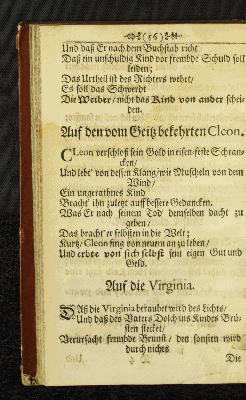 (56)
Und daß Er nach dem Buchstab richt
Daß ein unschuldig Kind vor frembde Schuld soll
leiden;
Das Urtheil ist des Richters wehrt/
Es soll das Schwerdt
Die Weiber/ nicht das Kind von ander schei-
den.
Auf den vom Geitz bekehrten Cleon.
CLeon verschloß sein Gold in eisen-feste Schran-
cken/
Und lebt' von dessen Klang/ wie Muscheln von dem
Wind/
Ein ungerathnes Kind
Bracht' ihn zuletzt auf bessere Gedancken.
Was Er nach seinem Tod' demselben dacht zu
geben/
Das bracht' er selbsten in die Welt;
Kurtz/ Cleon fing von neuen an zu leben/
Und erbte von sich selbst sein eigen Gut und
Geld.
Auf die Virginia.
DAß die Virginia beraubet wird des Lichts/
Und daß des Vaters Dolch ins Kindes Brü-
sten stecket/
Verursacht frembde Brunst/ den sonsten wird
durch nichts
Die